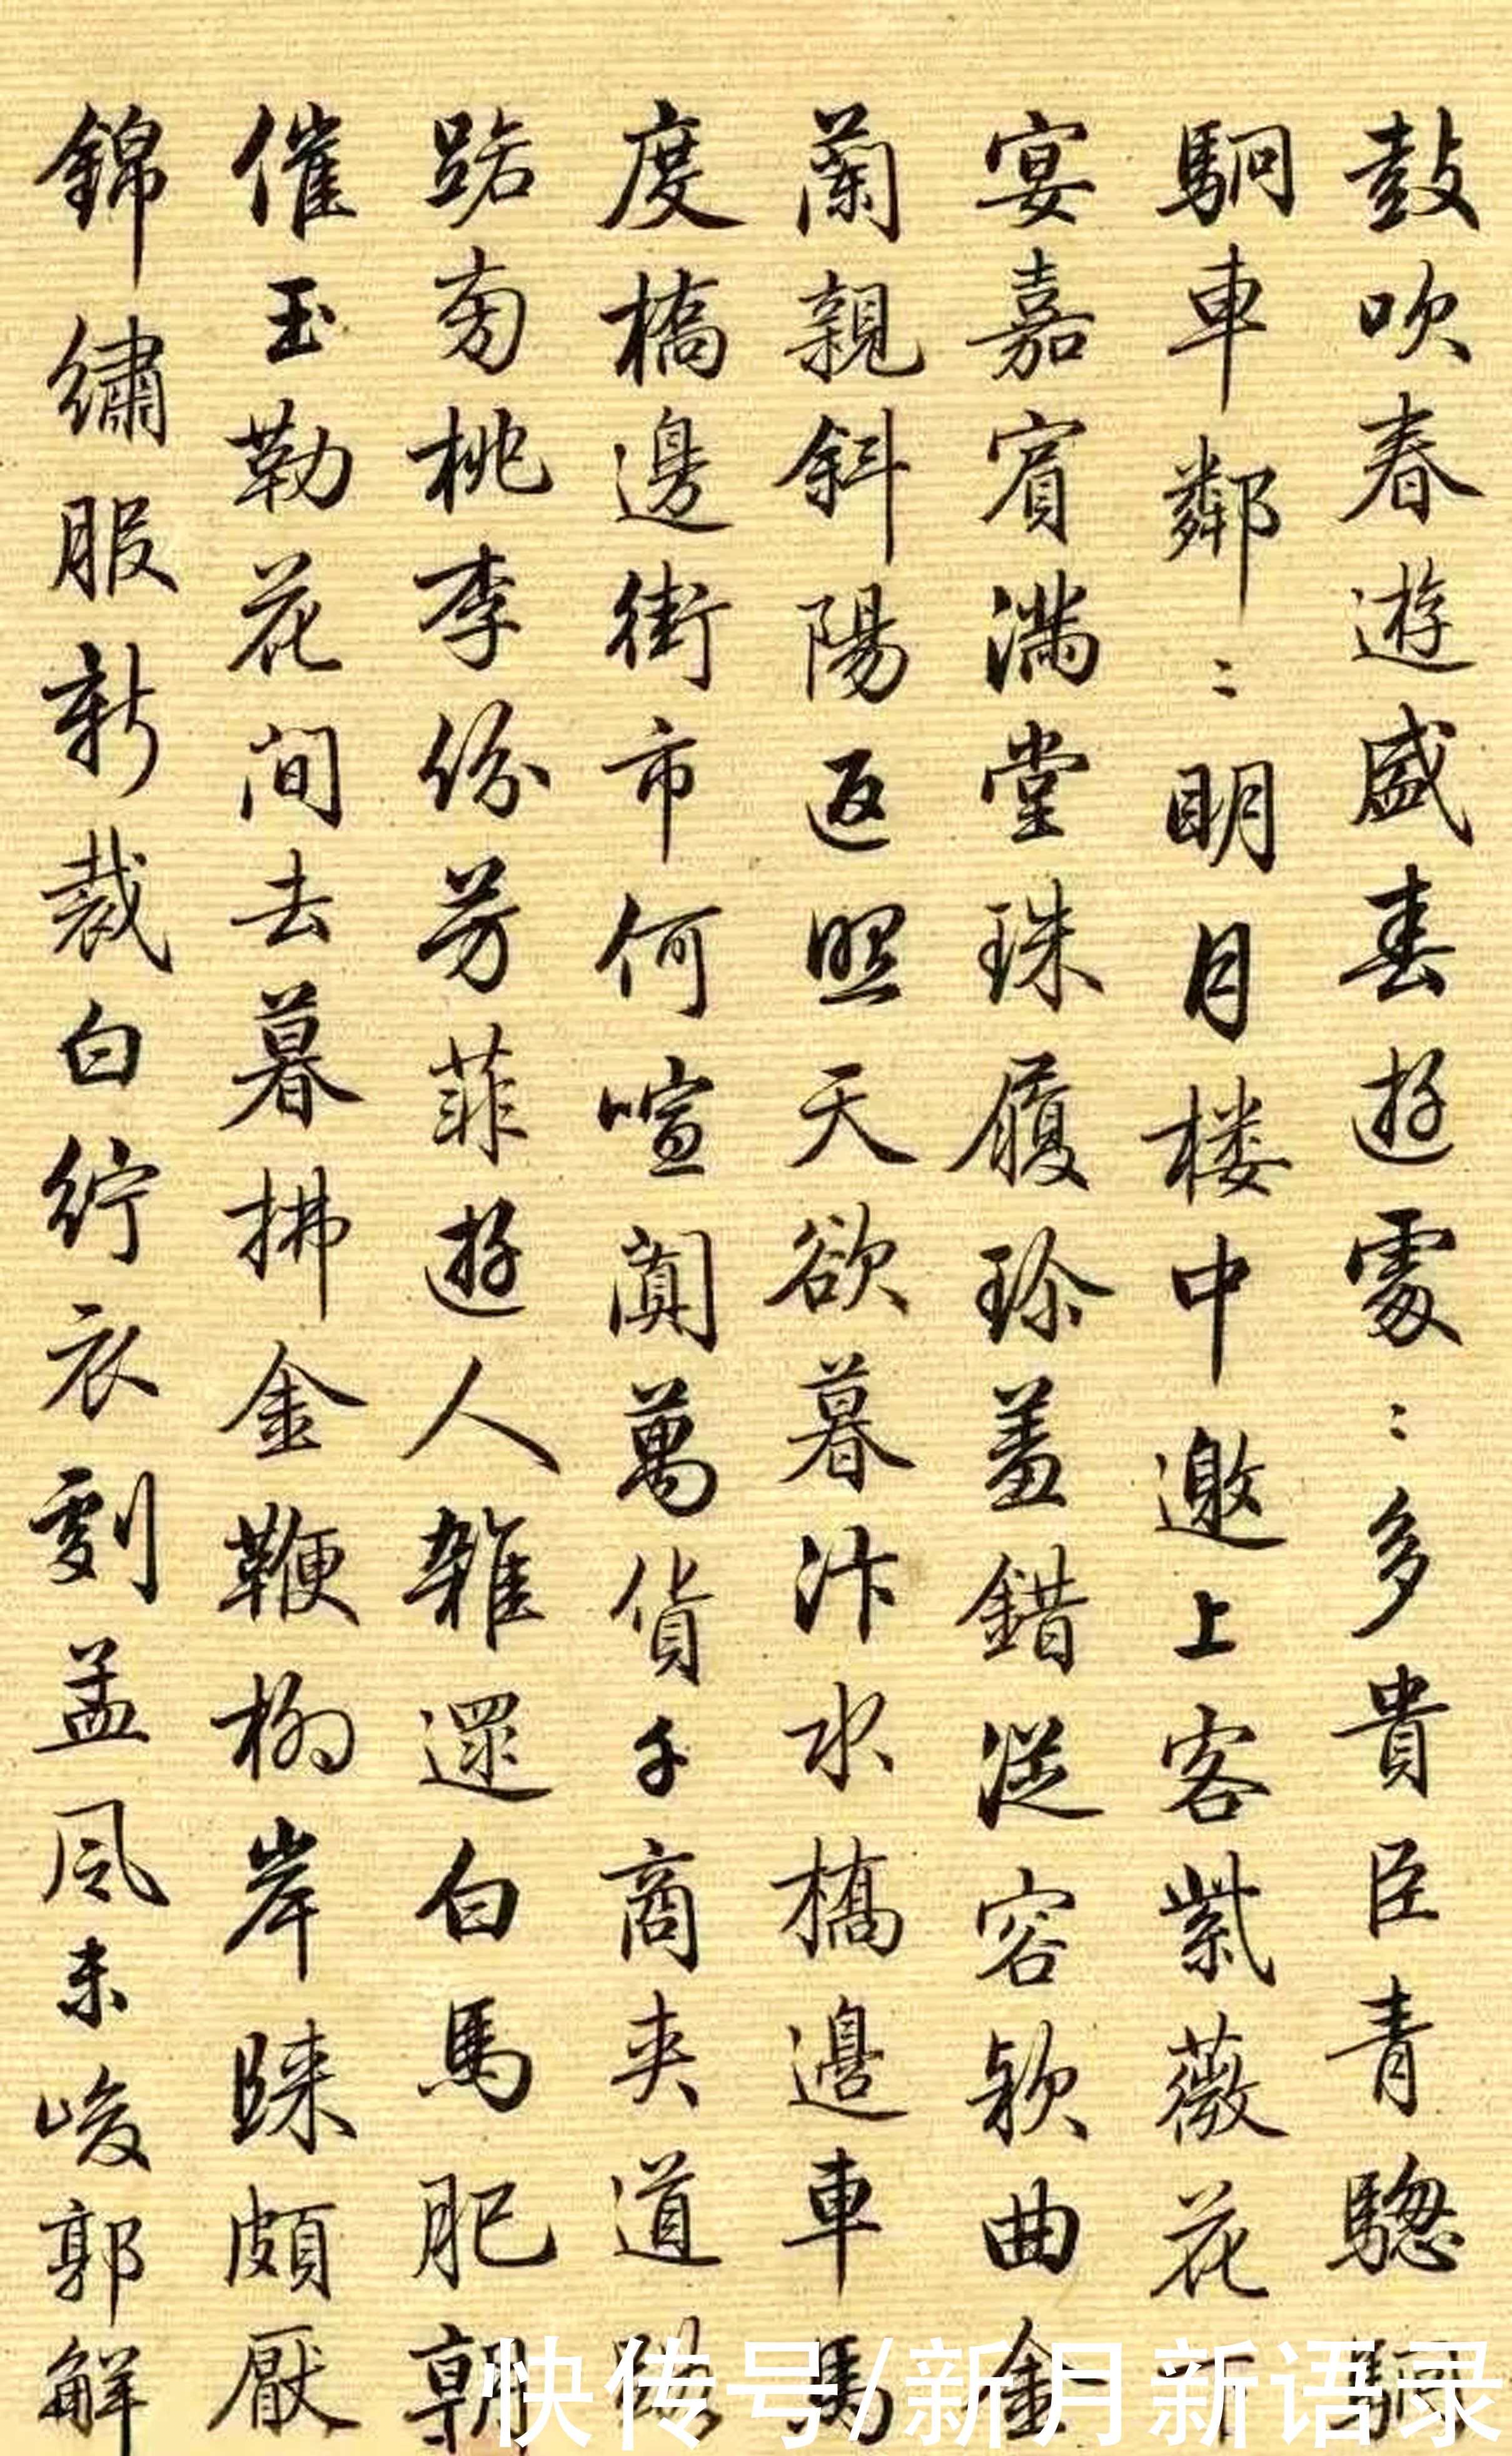 鼓吹春遊盛春遊處〻多貴臣青驄駟
駟車鄰〻明月楼中邀上客紫薇花下
宴嘉賓滿堂珠履珍羞錯從容款曲金
蘭親斜陽返照天欲暮汴水橋邊車馬
度橋邊街市何喧闐萬貨千商夹道
踞匄桃李份芳菲遊人雜遝白馬肥朝
催玉勒花间去暮拂金鞭柳岸歸頗厭
錦繡服新裁白紵衣劉孟風未峻郭解
快传号/新月新语录